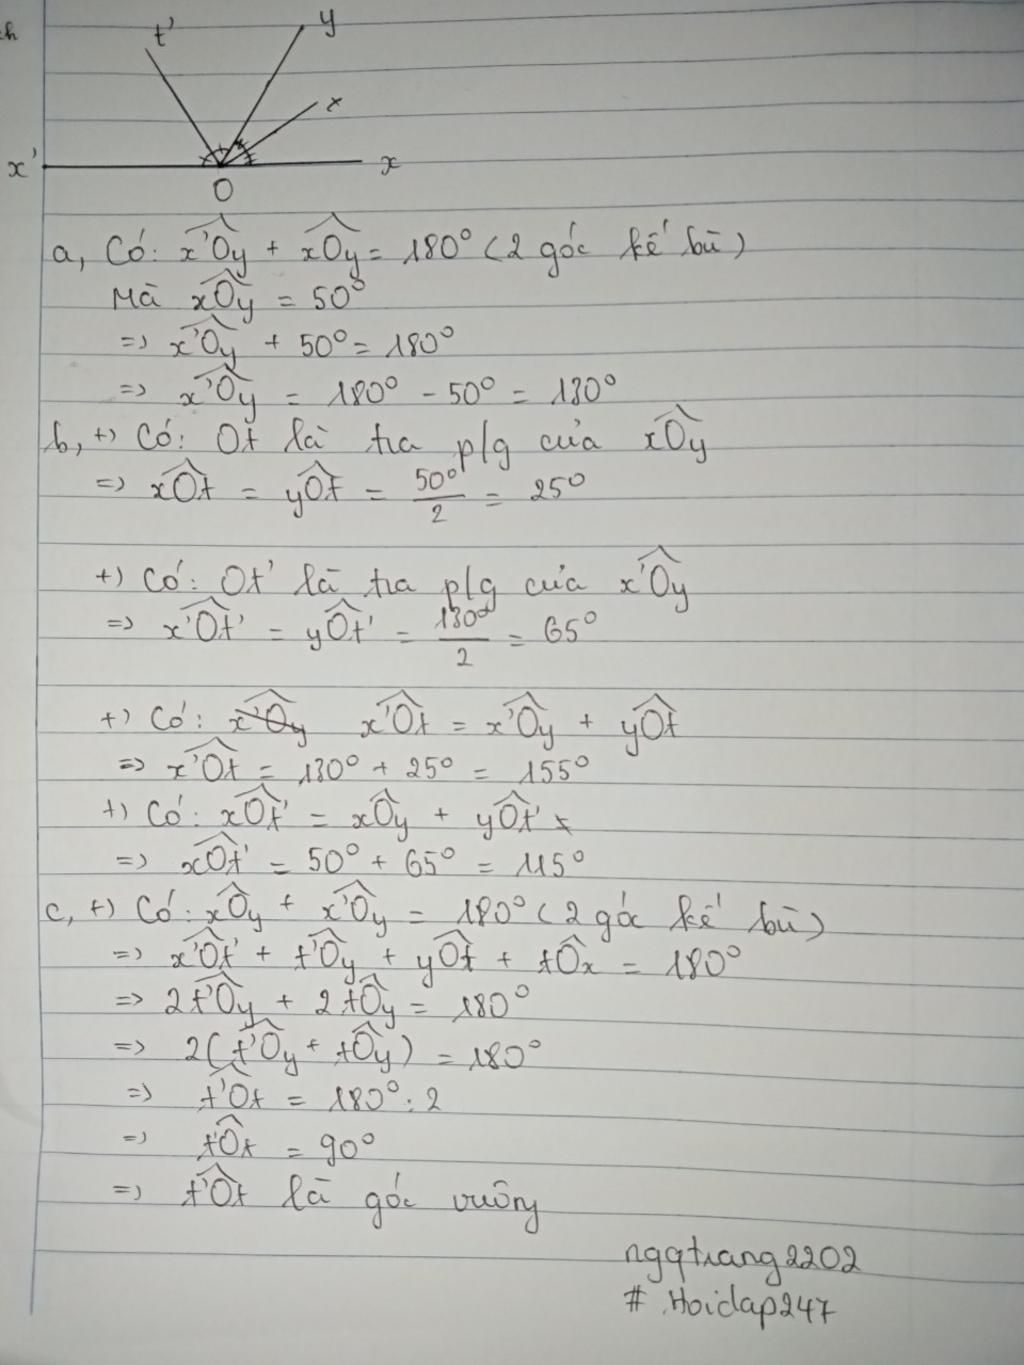 ch
t'
y
x
x'
x
O
a, Có: x'Oy + xOy = 180° (2 góc kế bù)
Mà xOy = 50°
=> x'Oy + 50° = 180°
=> x'Oy = 180° - 50° = 130°
b, +) Có: Ot là tia p/g của xOy
=> xOt = yOt = 50°/2 = 25°
+) Có: Ot' là tia p/g của x'Oy
=> x'Ot' = yOt' = 130°/2 = 65°
+) Có: x'Oy x'Ot = x'Oy + yOt
=> x'Ot = 130° + 25° = 155°
+) Có: xOt' = xOy + yOt'
=> xOt' = 50° + 65° = 115°
c, +) Có: xOy + x'Oy = 180° (2 góc kế bù)
=> x'Ot' + t'Oy + yOt + tOx = 180°
=> 2t'Oy + 2tOy = 180°
=> 2(t'Oy + tOy) = 180°
=> t'Ot = 180° : 2
=> t'Ot = 90°
=> t'Ot là góc vuông
ngqtrang2202
# Hoidap247